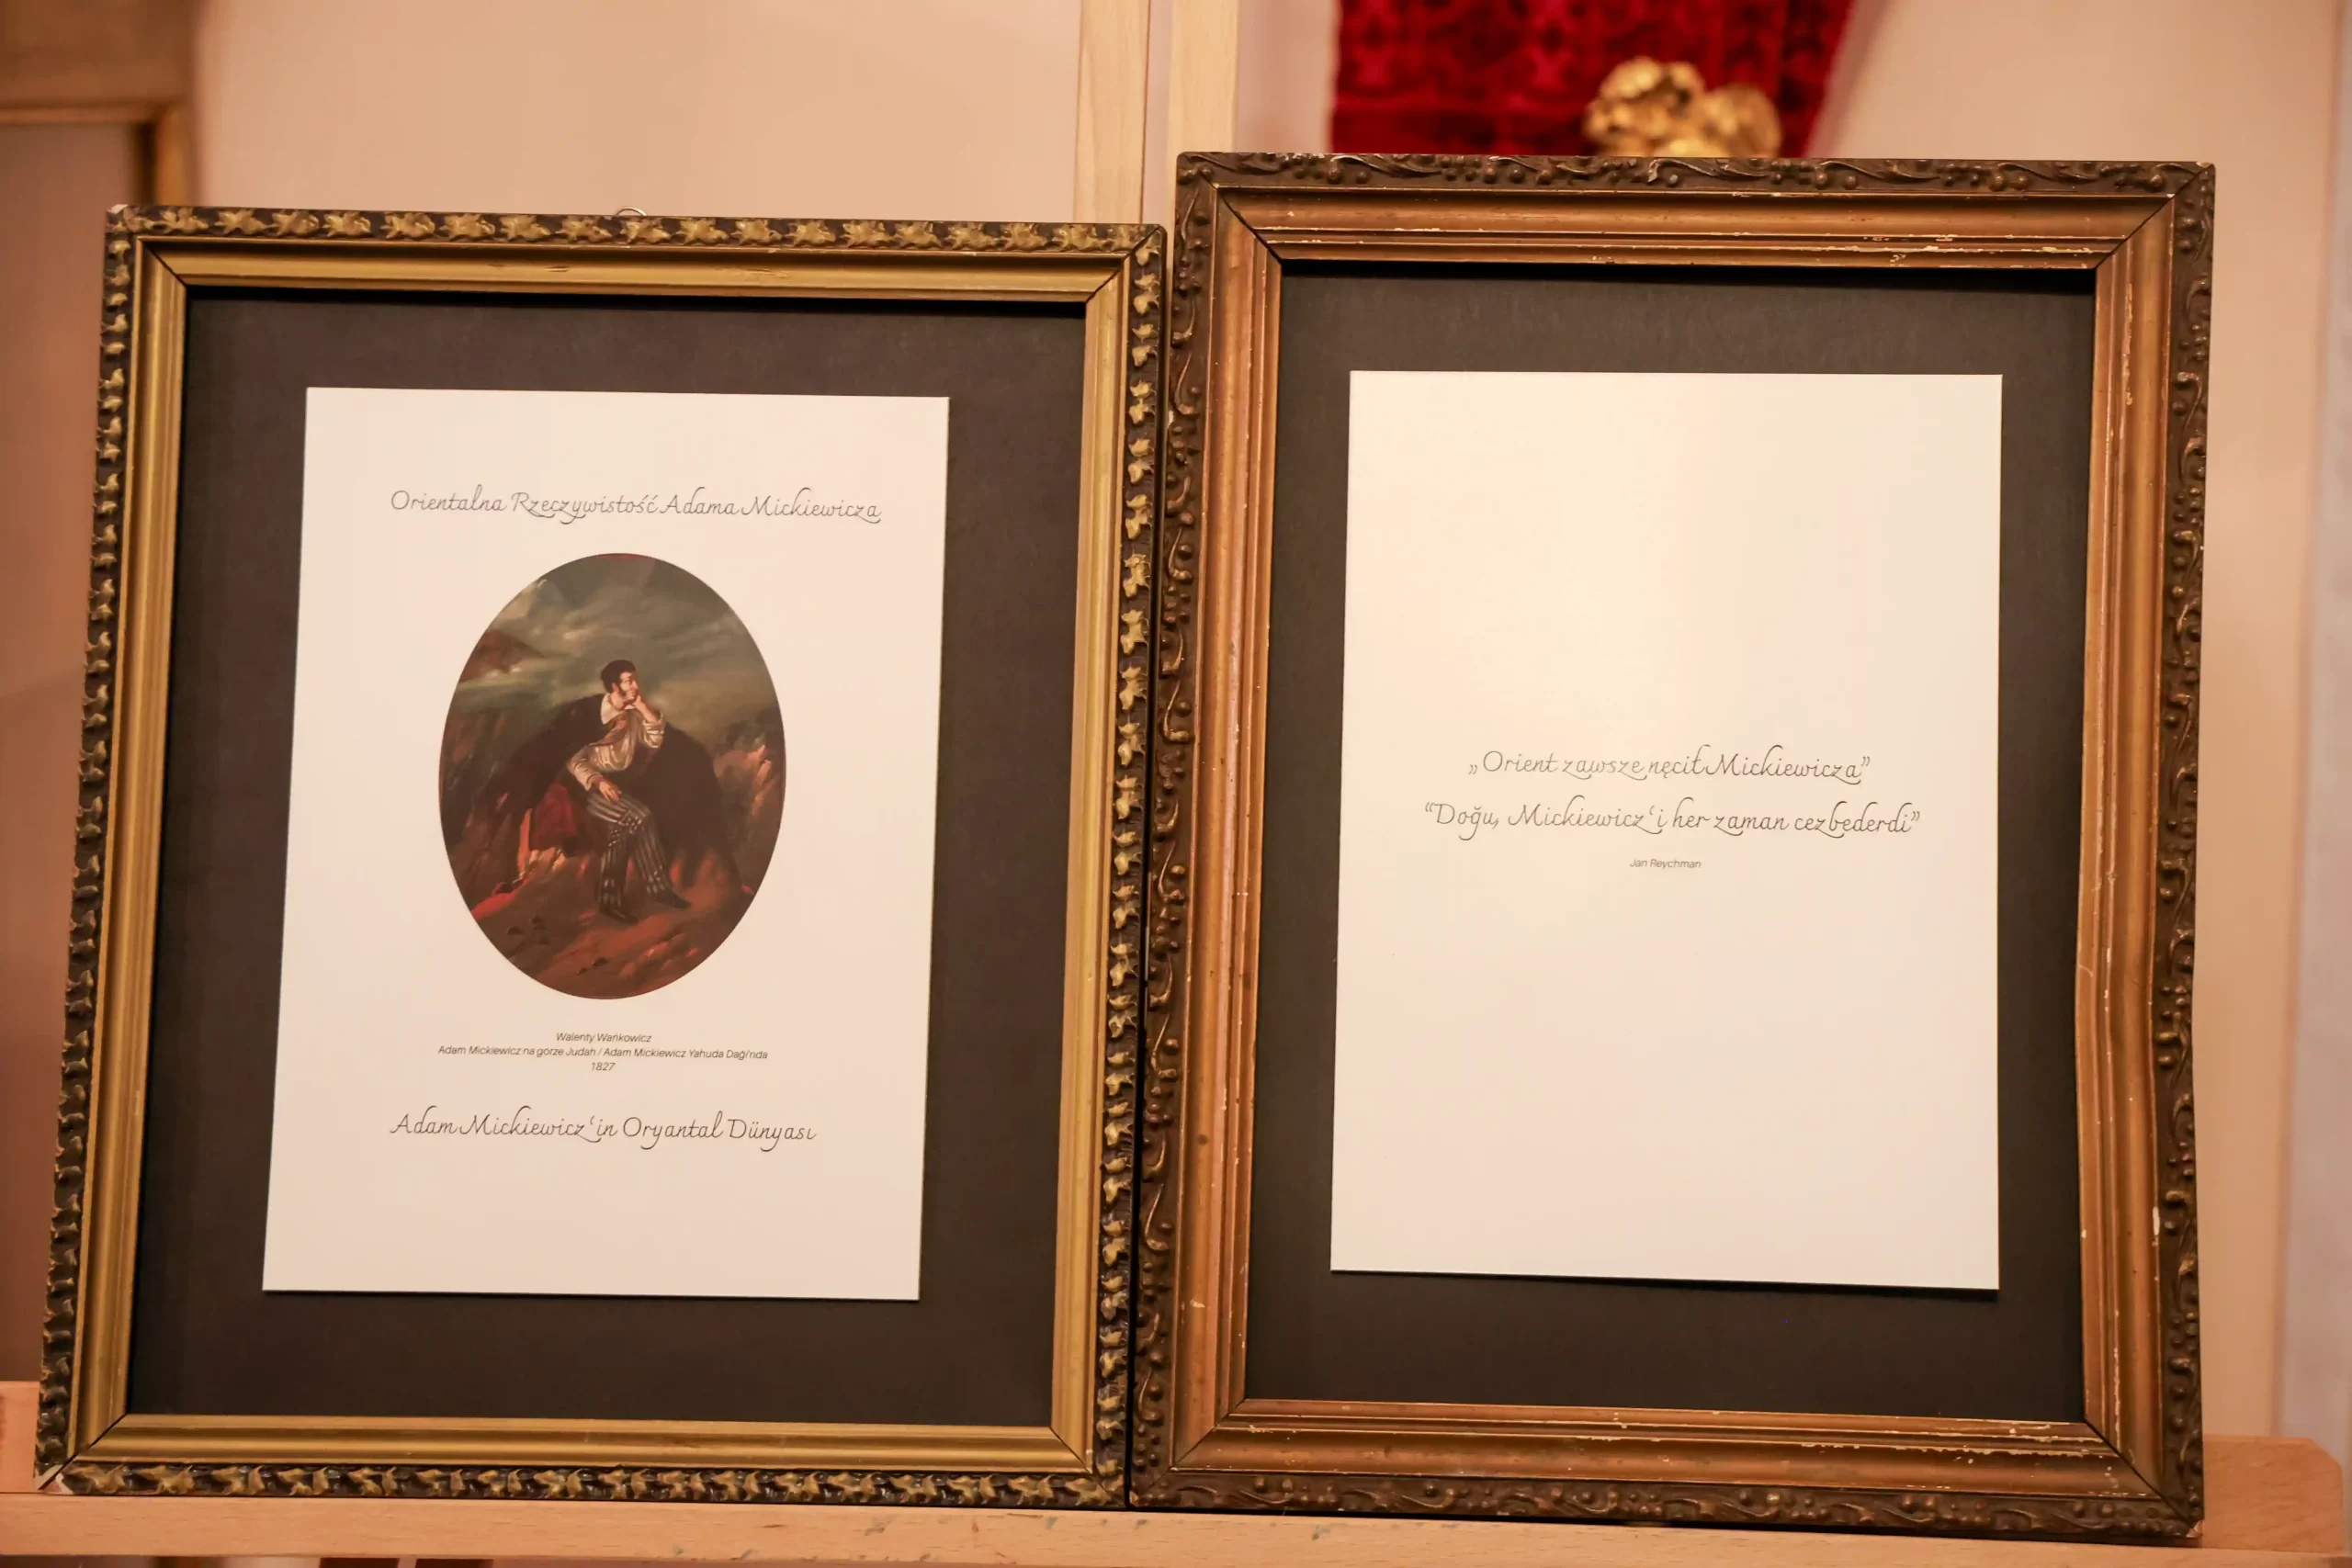 Orientalna Rzeczywistość Adama Mickiewicza
Walenty Wańkowicz
Adam Mickiewicz na górze Judah / Adam Mickiewicz Yahuda Daği'nda
1827
Adam Mickiewicz‘in Oryantal Dünyası
„Orient zawsze nęcił Mickiewicza”
“Doğu, Mickiewicz‘i her zaman cezbederdi”
Jan Reychman